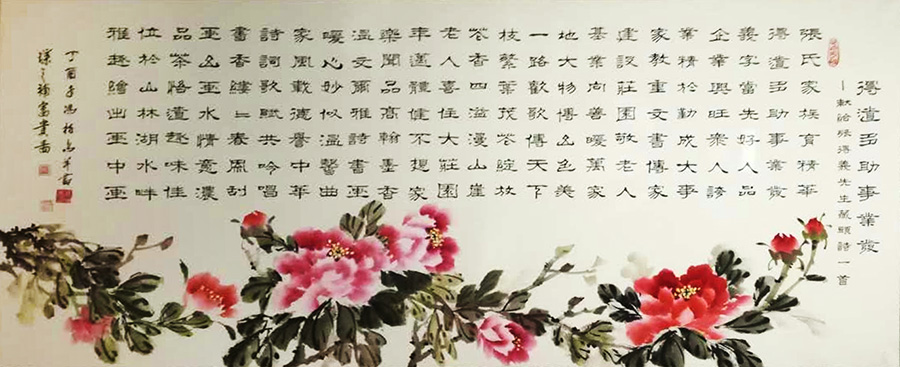 得道多助事業發
—献给張得義先生藏頭詩一首
張氏家族育精華
得道多助事業發
義字當先好人品
企業興旺衆人誇
業精於勤成大事
家教重文書傳家
建設莊園敬老人
基業向善暖萬家
地大物博山色美
一路歡歌傳天下
枝繁葉茂花綻放
花香四溢漫山崖
老人喜住大莊園
年邁體健不想家
樂聞品高翰墨香
温文爾雅詩書画
暖心妙似温馨曲
家風載德譽中華
詩詞歌賦共吟唱
書香縷〻春風刮
画山画水情意濃
品茶悟道趣味佳
位於山林湖水畔
雅趣繪出画中画
丁酉年馮柏
補富貴圖